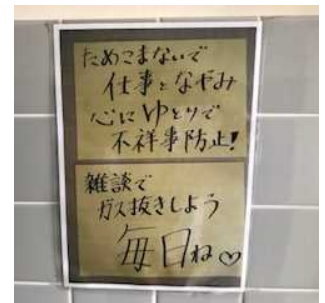 ためこまないで
仕事となやみ
心にゆとりで
不祥事防止!
雑談で
ガス抜きしよう
毎日ね♡